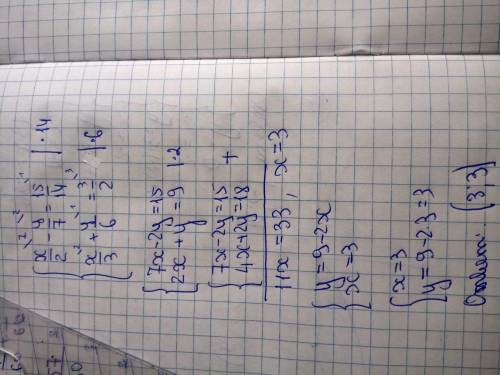 { x/2 - y/7 = 15/14 | ·14
{ x/3 + y/6 = 3/2 | ·6
{ 7x-2y=15
{ 2x+y=9 |·2
{ 7x-2y=15 +
{ 4x+2y=18
11x=33, x=3
{ y=9-2x
{ x=3
{ x=3
{ y=9-2·3=3
Ответ: (3;3)